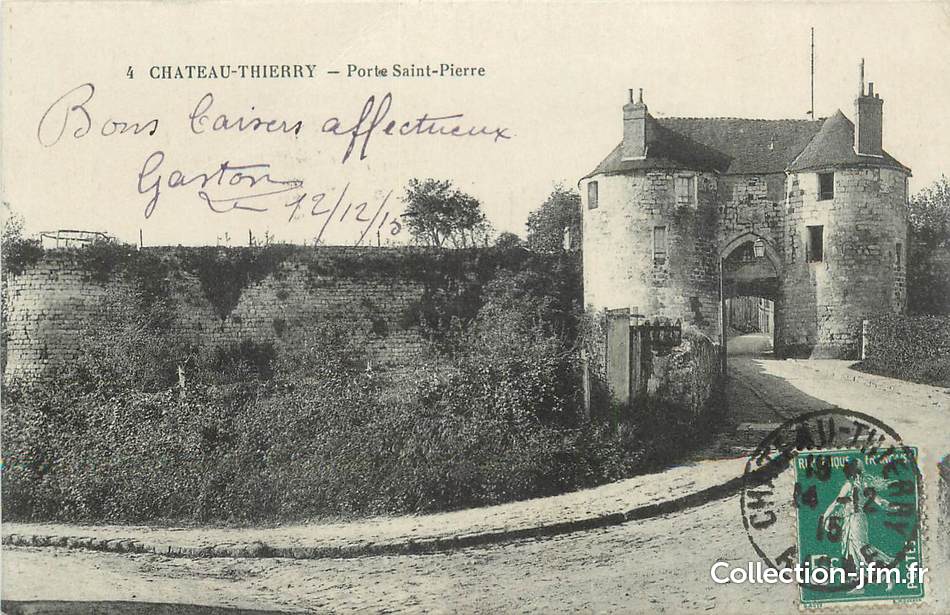 4 CHATEAU-THIERRY – Porte Saint-Pierre
Bons baisers affectueux
Gaston 12/12/15
CHATEAU-THIERRY
14 -12
15
REPUBLIQUE FRANÇAISE
5c
POSTES
Collection-jfm.fr